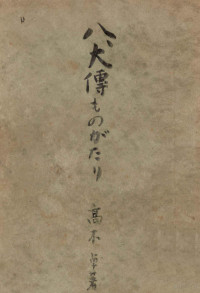 八犬傳ものがたり
高木 著